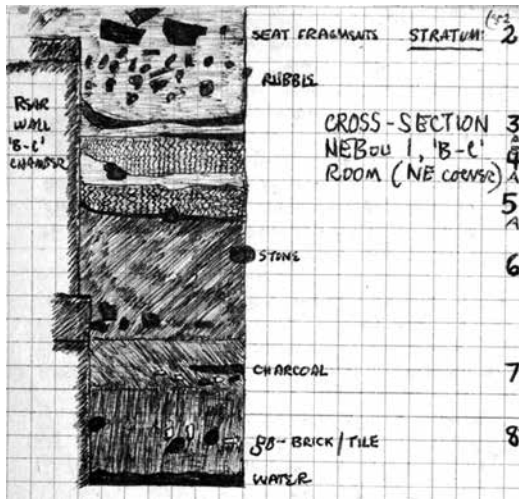 SEAT FRAGMENTS STRATUM: 2
RUBBLE
REAR
WALL
'B-C'
CHAMBER
CROSS-SECTION 3
NEBOU 1, 'B-C' 4
ROOM (NE CORNER) A
5
A
STONE
6
CHARCOAL 7
BRICK/TILE 8
WATER